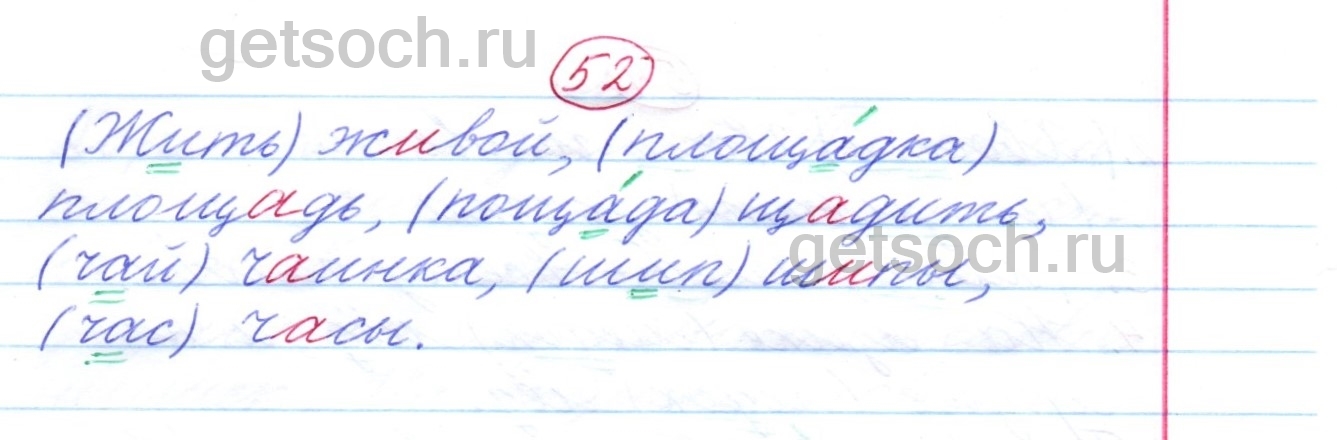 getsoch.ru
52
(Жить) живой, (площа́дка)
площадь, (поща́да) щадить,
getsoch.ru
(чай) чаинка, (шип) шипы,
(час) часы.